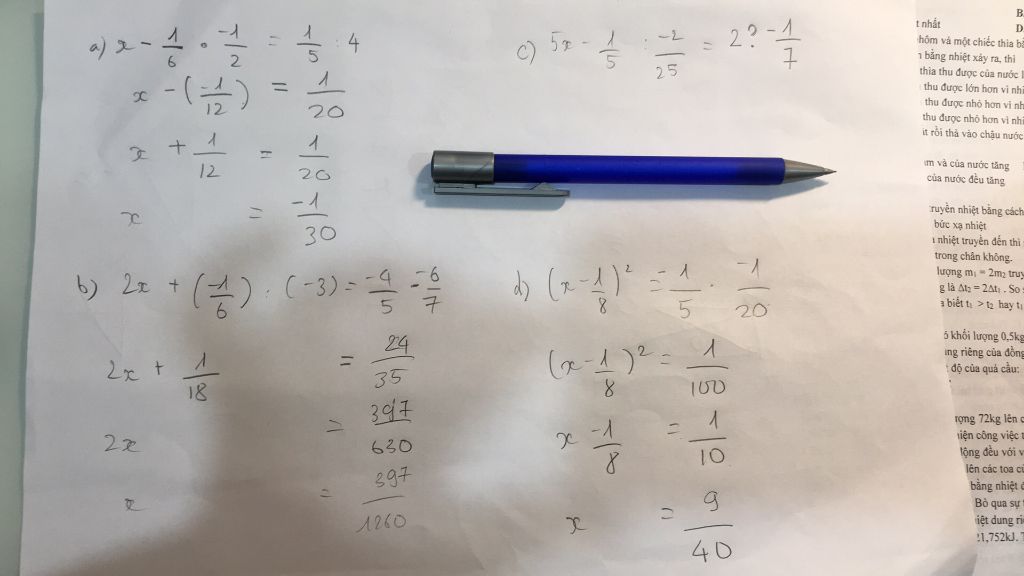 a) x - 1/6 . -1/2 = 1/5 : 4
x - (-1/12) = 1/20
x + 1/12 = 1/20
x = -1/30
b) 2x + (-1/6) : (-3) = -4/5 . -6/7
2x + 1/18 = 24/35
2x = 397/630
x = 397/1260
c) 5x - 1/5 : -2/25 = 2? -1/7
d) (x - 1/8)² = -1/5 . -1/20
(x - 1/8)² = 1/100
x - 1/8 = 1/10
x = 9/40
B
t nhất D
hôm và một chiếc thìa b
bằng nhiệt xảy ra, thì
thìa thu được của nước l
thu được lớn hơn vì nhi
thu được nhỏ hơn vì nh
thu được nhỏ hơn vì nhi
t rồi thả vào chậu nước
m và của nước tăng
của nước đều tăng
truyền nhiệt bằng cách
bức xạ nhiệt
nhiệt truyền đến thì
trong chân không.
lượng m₁ = 2m₂ truy
g là Δt₂ = 2Δt₁ . So
biết t₁ > t₂ hay t₁
ó khối lượng 0,5kg
ng riêng của đồng
độ của quả cầu:
ượng 72kg lên c
iện công việc t
động đều với v
lên các toa củ
bằng nhiệt
Bỏ qua sự
iệt dung ri
21,752kJ. T